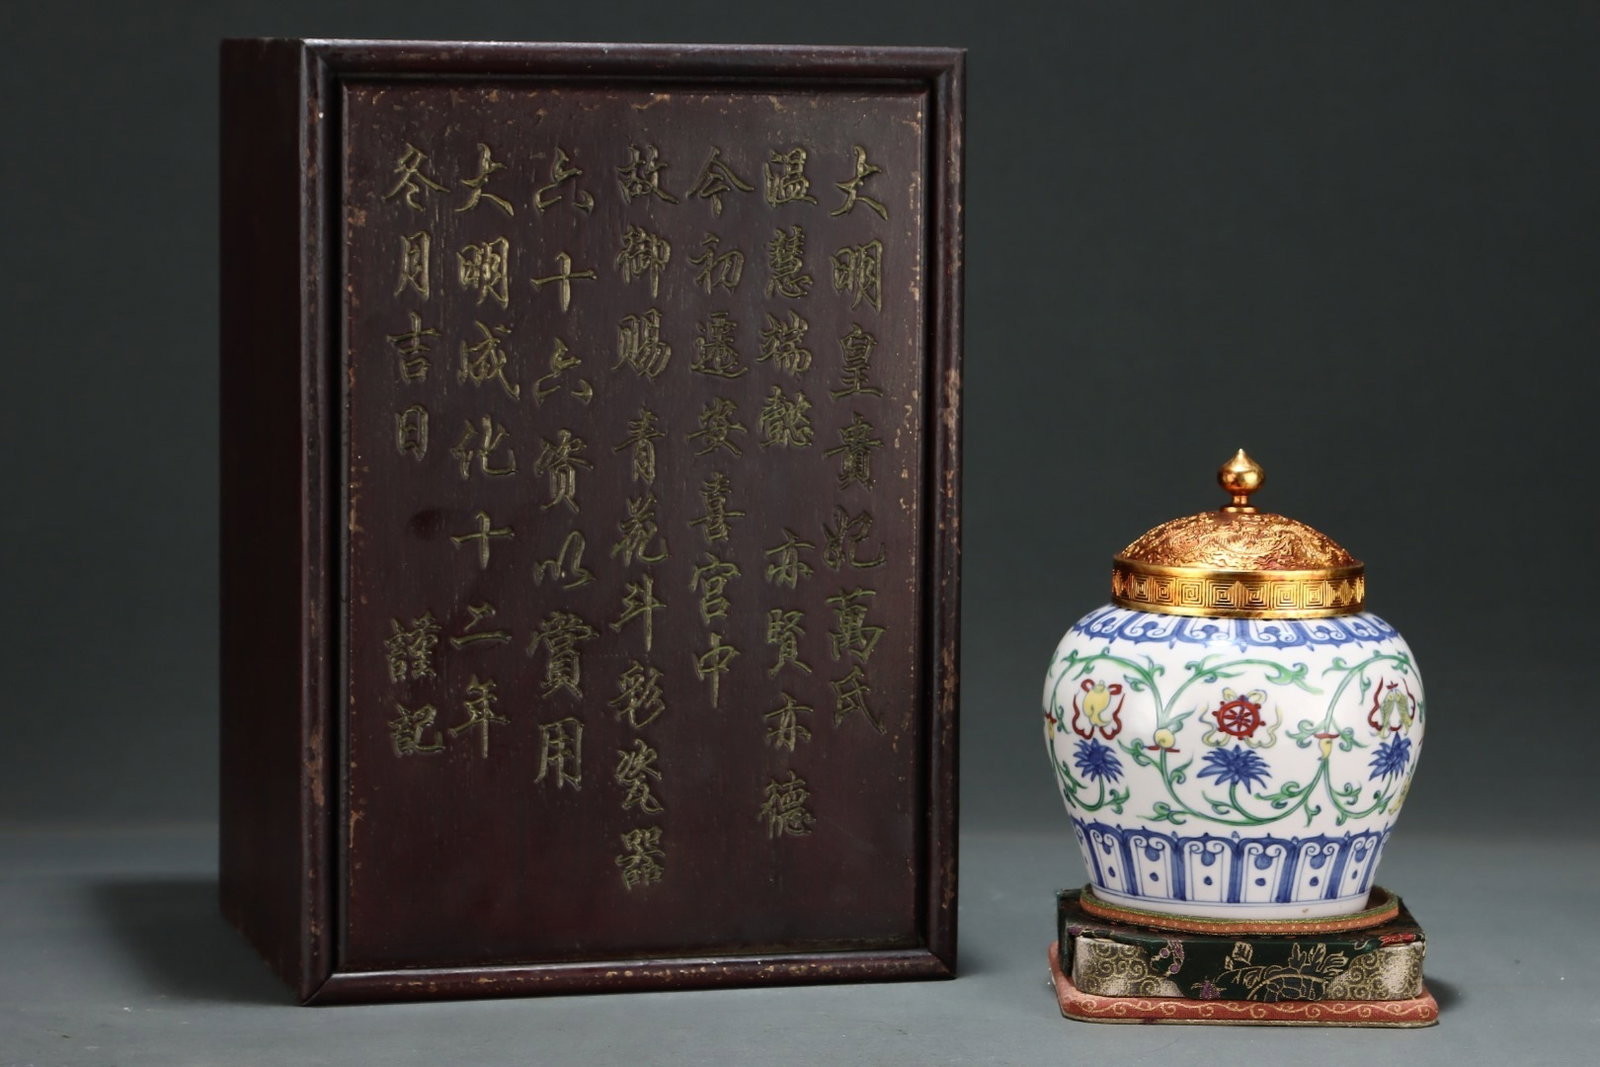 大明皇貴妃萬氏
温慧端懿 亦賢亦德
今初遷安喜宫中
故御賜 青花斗彩瓷器
六十六资以賞用
大明成化十二年
冬月吉日 謹記